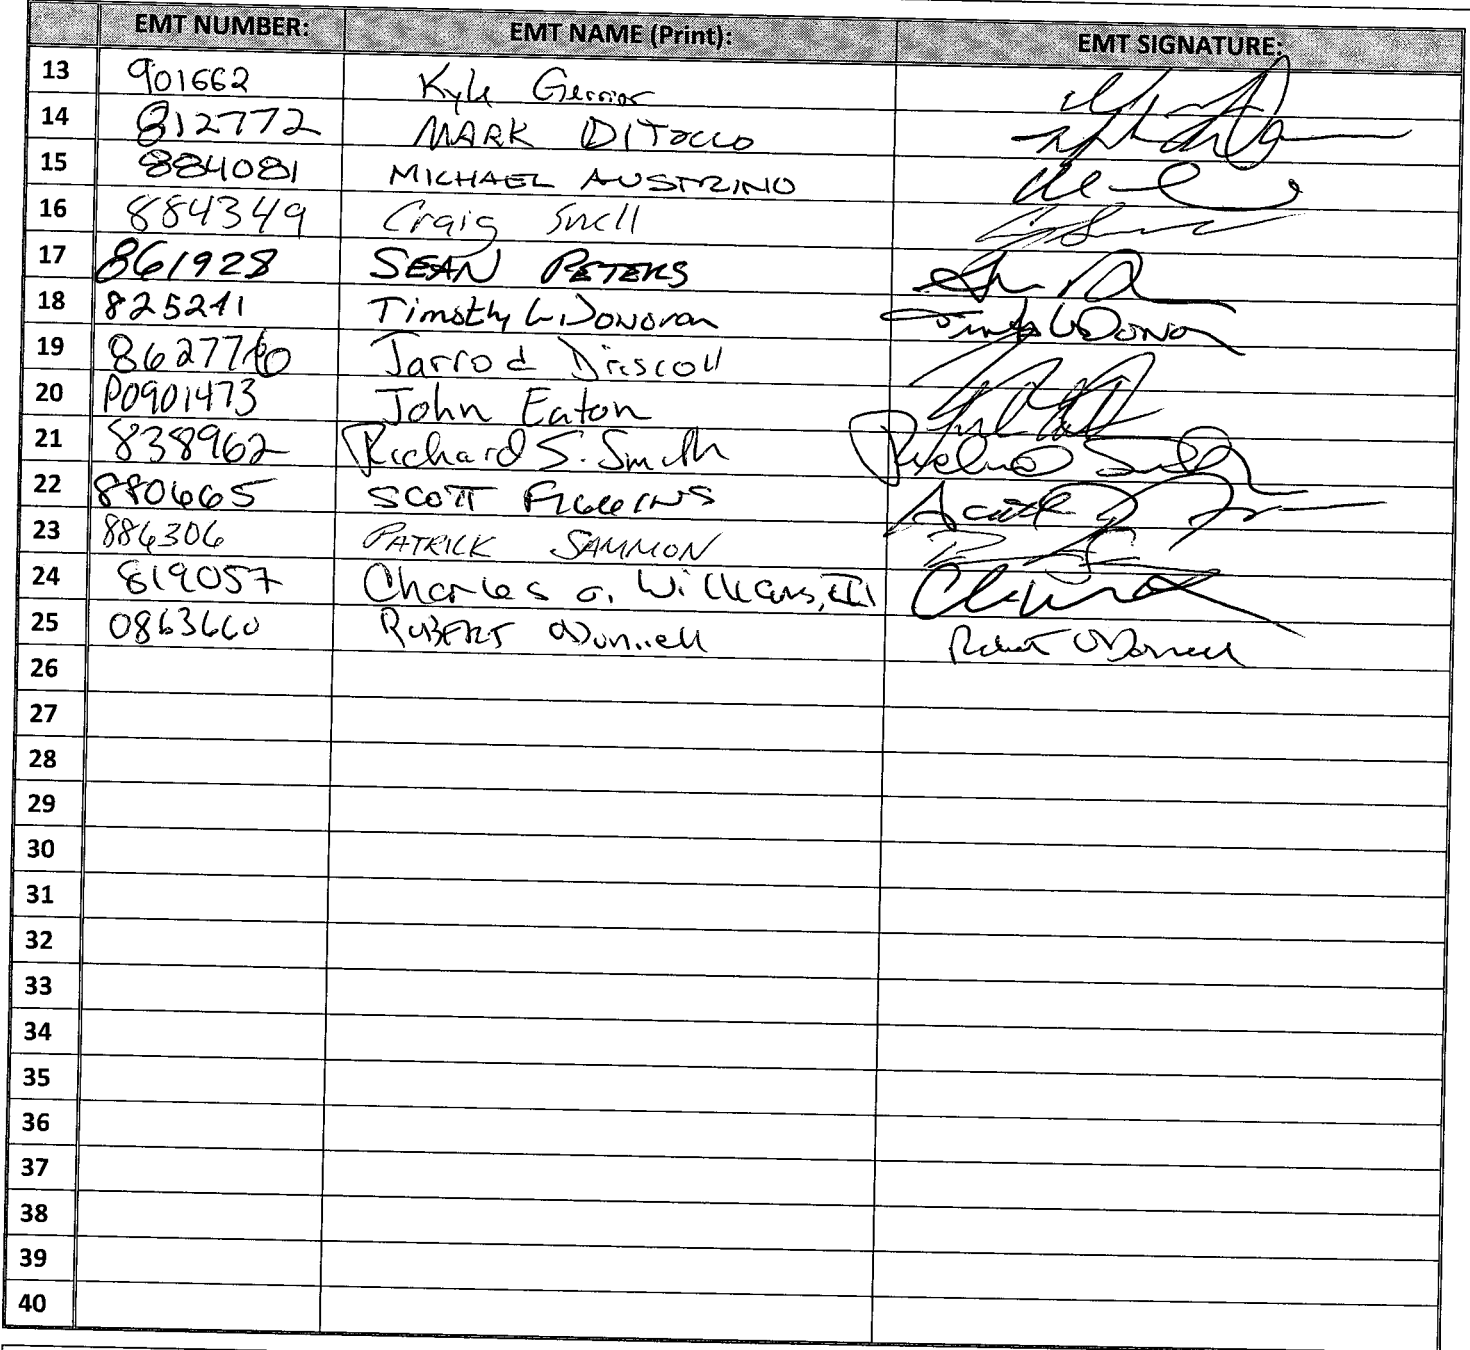 EMT NUMBER: EMT NAME (Print): EMT SIGNATURE:
13 901662 Kyle Gerrior
14 812772 MARK DITOCCO
15 884081 MICHAEL AUSTRINO
16 884349 Craig Snell
17 861928 SEAN PETERS
18 825241 Timothy W. Donovan
19 Jarrod Driscoll
20 P0901473 John Eaton
21 838962 Richard S. Smith Richard Smith
22 880665 SCOTT
23 886306 PATRICK SAMMON
24 819057 Charles a. Williams, III
25 0863660 ROBERT O'Donnell Robert O'Donnell
26
27
28
29
30
31
32
33
34
35
36
37
38
39
40